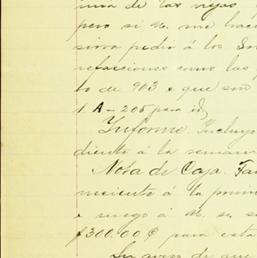 una de las viejas
pero si U. me hace
sirva pedir á los
refacciones como las
to de 903 e que son
1 A – 205 para id/
Informe. Incluyo
diente á la semana
Nota de Caja.
neciente á la
e ruego á U. se
$300.00 para esta
de que